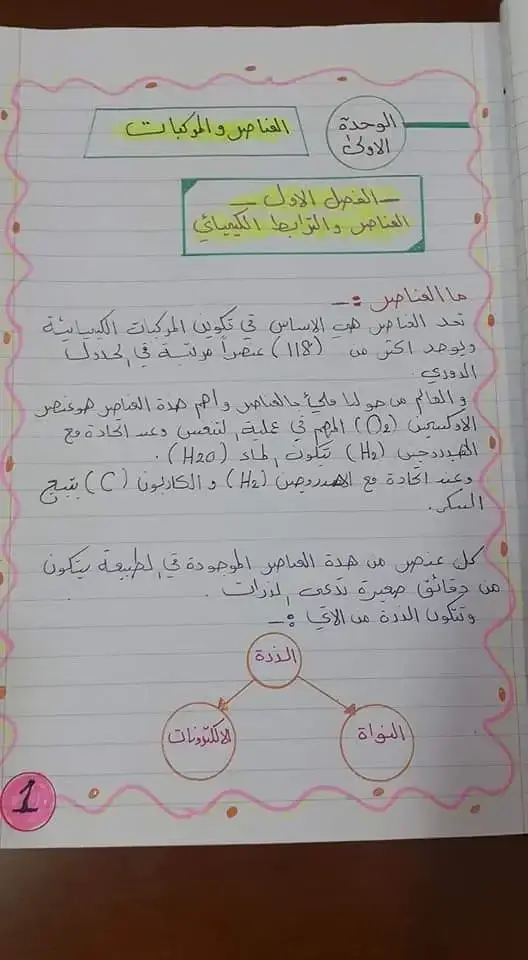 الوحدة
الاولى
العناصر والمركبات
- الفصل الاول -
العناصر والترابط الكيميائي
ما العناصر :-
تعد العناصر هي الاساس في تكوين المركبات الكيميائية
ويوجد اكثر من (118) عنصراً مرتبة في الجدول
الدوري.
و العالم من حولنا مليئ بالعناصر وأهم هذة العناصر هو عنصر
الاوكسجين (O2) المهم في عملية التنفس وعند اتحادة مع
الهيدروجين (H2) يتكون الماء (H2O).
وعند اتحادة مع الهيدروجين (H2) و الكاربون (C) ينتج
السكر.
كل عنصر من هذة العناصر الموجودة في الطبيعة يتكون
من دقائق صغيرة تدعى الذرات.
وتتكون الذرة من الاتي :-
الذرة
النواة
الالكترونات
1